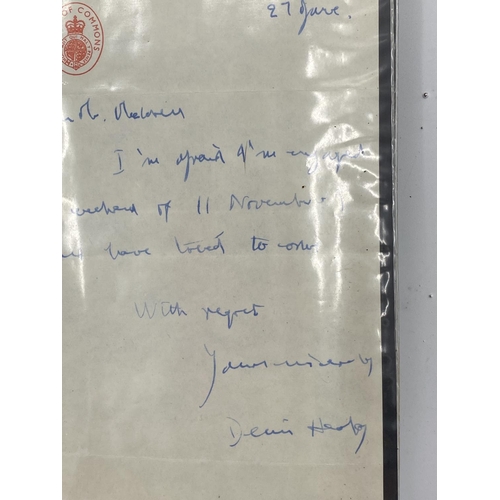 OF COMMONS
27 June.
I'm afraid I'm engaged
weekend of 11 November
have loved to come
With regret
Yours sincerely
Denis Healey